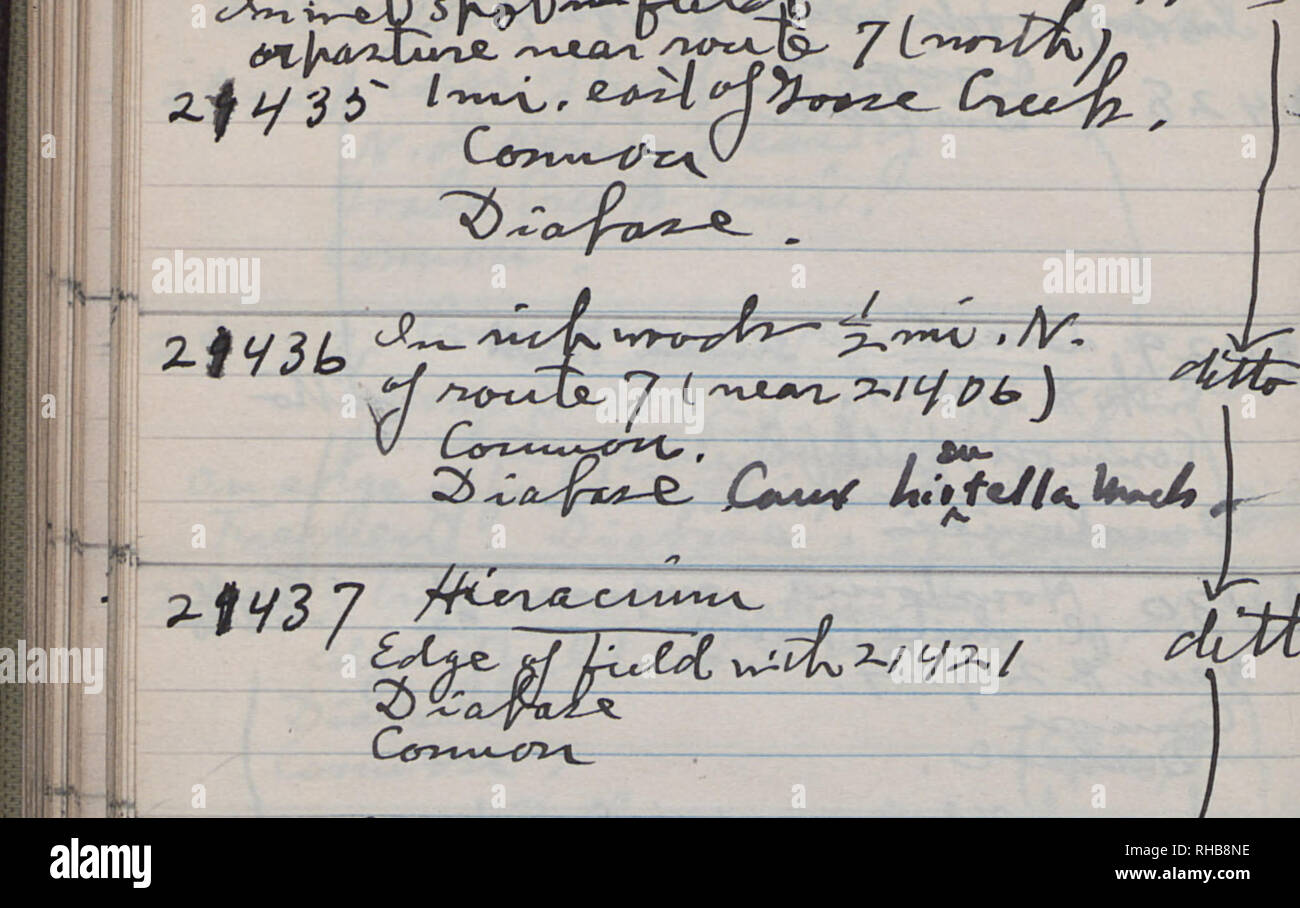 In wet spot in field
or pasture near route 7 (north)
21435 1 mi. east of Goose Creek.
Common
Diabase.
21436 In rich woods ½ mi. N. ditto
of route 7 (near 21406)
Common.
en
Diabase Carex histella
21437 Hieracium
Edge of field with 21421 ditt
Diabase
Common
alamy
a
alamy
Image ID: RHB8NE
www.alamy.com